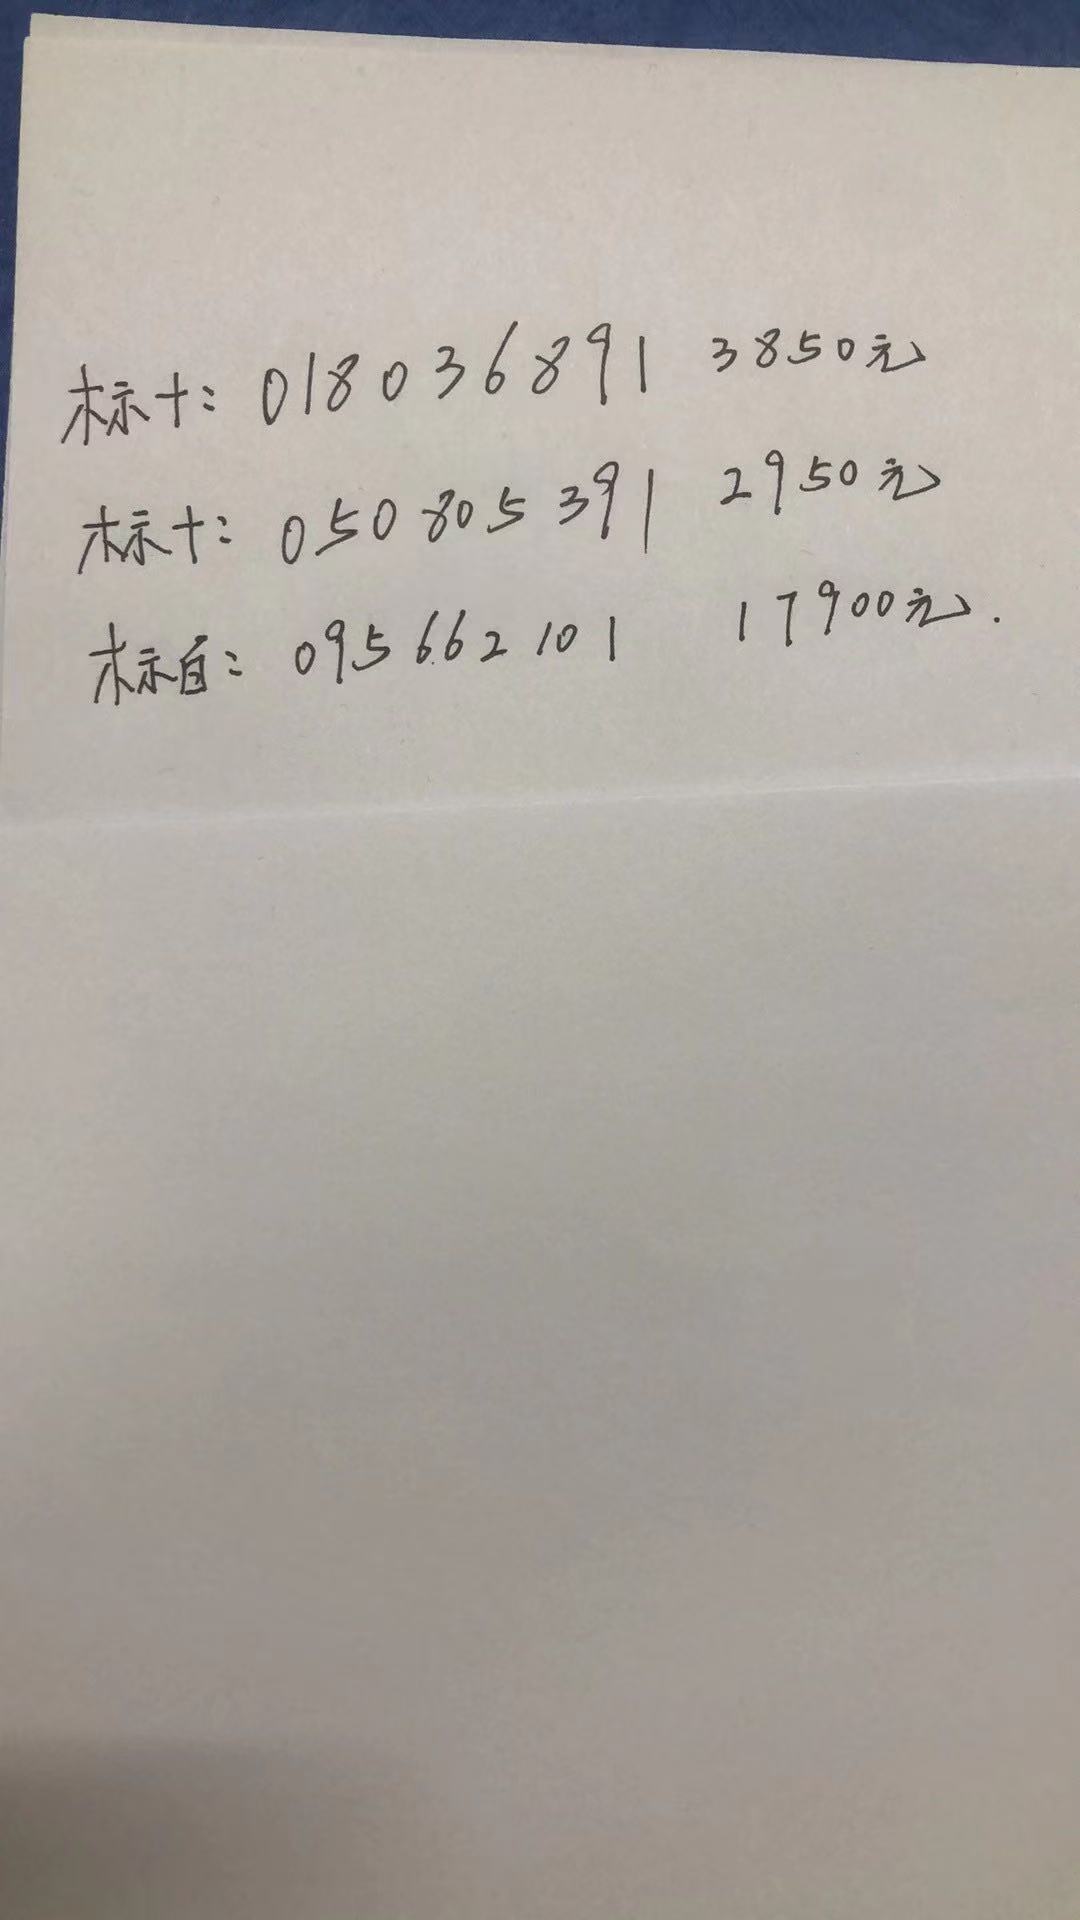 标十: 018036891 3850元
标十: 050805391 2950元
标百: 095662101 17900元.